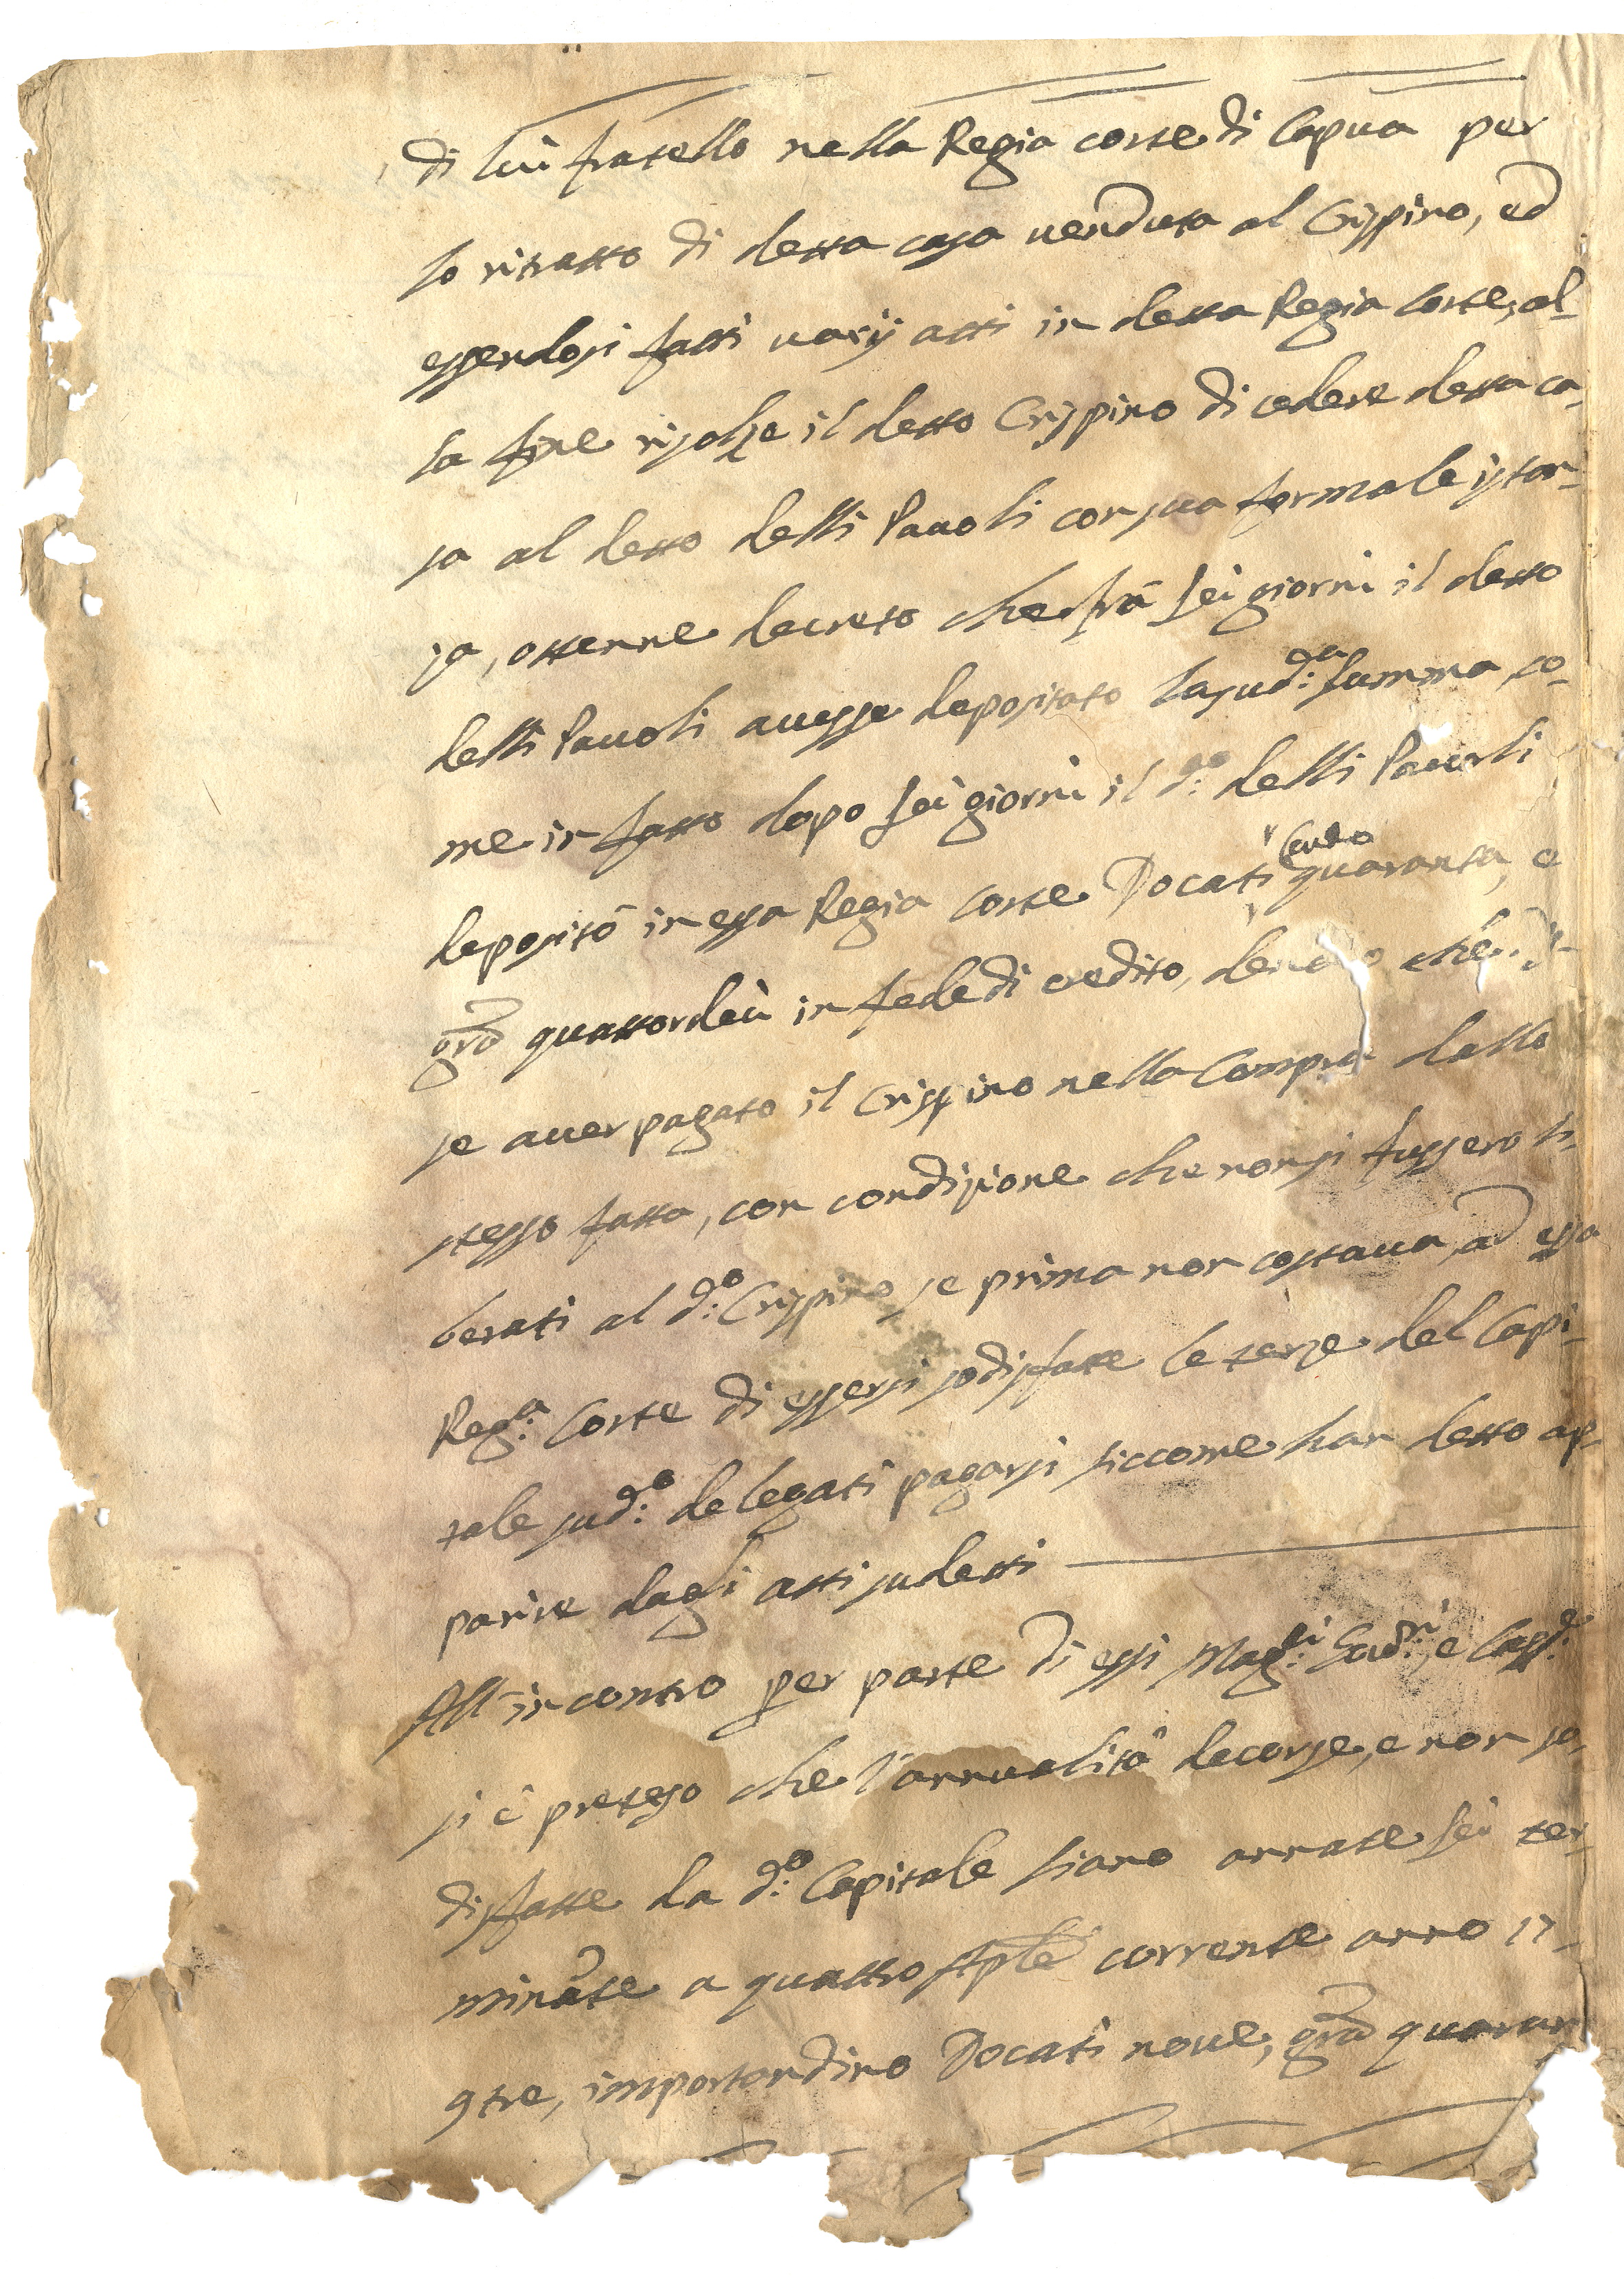 di lui fratello nella Regia corte di Capua per
lo ritratto di detta casa venduta al Crispino, ed
essendosi fatti varij atti in detta Regia Corte, al-
la fine risolse il detto Crispino di cedere detta ca-
sa al detto delli Pauoli con sua formale istan-
za, ottenne decreto che frà sei giorni il detto
delli Pauoli auesse depositato la sud:ª summa, co-
me in fatto dopo sei giorni il d:º delli Pauoli
depositò in essa Regia Corte Docati cento quaranta, e
grā quattordeci in fede di credito, che
se auer pagato il Crispino nella Compra dallo
stesso fatta, con condizione che non si fussero li-
berati al d:º Crispino se prima non costaua, ad essa
Reg:ª Corte di essersi sodisfatte le terze del Capi-
tale sud:º delegati pagarsi siccome han detto ap-
parire dagli atti sudetti
All'incontro per parte di essi Mag:ci e
si è preteso che l'annualità decorse, e non so-
disfatte da d:º Capitale siano annate sei ter-
minate a quattro sٖple corrente anno 17-
9tre, importandino Docati noue, grā quaran